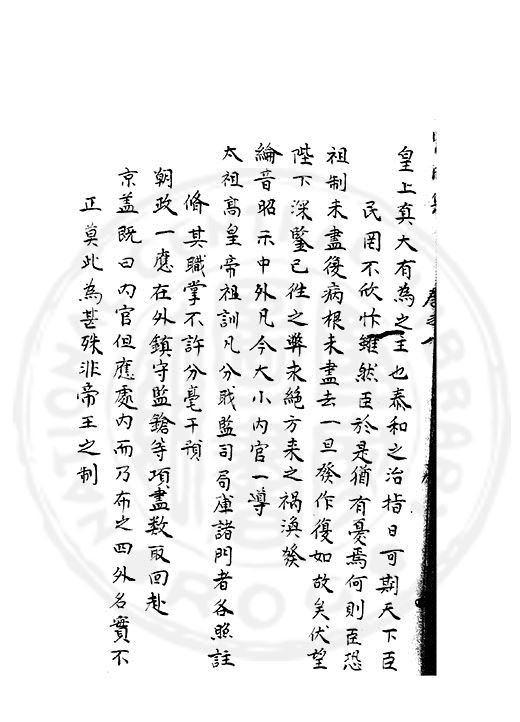 皇上真大有為之主也泰和之治指日可期天下臣
民罔不欣忭雖然臣於是猶有憂焉何則臣恐
祖制未盡復病根未盡去一旦發作復如故矣伏望
陛下深鑒已徃之弊末絕方来之禍渙發
綸音昭示中外凡今大小內官一導
太祖髙皇帝祖訓凡分職監司局庫諸門者各照註
俻其職掌不許分毫干預
朝政一應在外鎮守監鎗等項盡数取回赴
京盖既曰內官但應處內而乃布之四外名實不
正莫此為甚殊非帝王之制